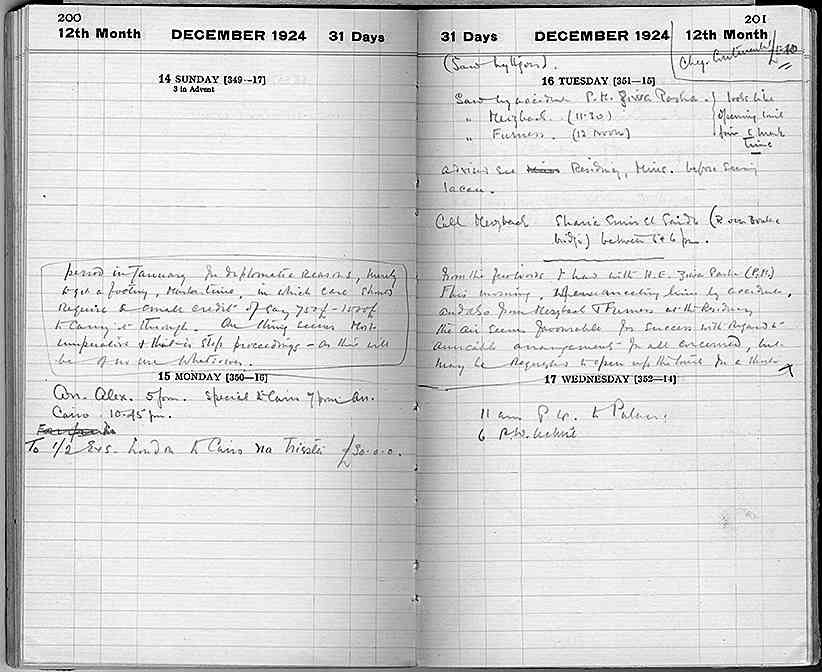 200
12th Month DECEMBER 1924 31 Days
14 SUNDAY [349—17]
3 in Advent
period in January for diplomatic reasons, merely
to get a footing, & mark time, in which case I should
require a small credit of say 750£ - 1000£
to carry it through. One thing seems most
imperative & that is Stop proceedings - as this will
be of no use whatsoever.
15 MONDAY [350—16]
Arr. Alex. 5 p.m. Special to Cairo 7 pm arr.
Cairo 10.45 pm.
To 1/2 Exs. London to Cairo via Trieste £30-0-0.
201
31 Days DECEMBER 1924 12th Month
Chq. £5.10
(Saw Lythgoe).
16 TUESDAY [351—15]
Saw by accident P.M. Ziwa Pasha. looks like
" Merzbach. (11.30) opening until
" Furness. (12 noon) for mark
time
advises see Residency, Mins. before seeing
Lacau.
Call Merzbach Sharia Emir el Said (over Boulac
bridge) between 5 & 6 pm.
From the few words I had with H.E. Ziwa Pasha (P.M.)
This morning, meeting him by accident,
and also from Merzbach & Furness at the Residency
the air seems favourable for success with regard to
amicable arrangement for all concerned, but
may be requested to open up the tomb for a short
17 WEDNESDAY [352—14]
11 am P.W. to Palace.
6 P.W.